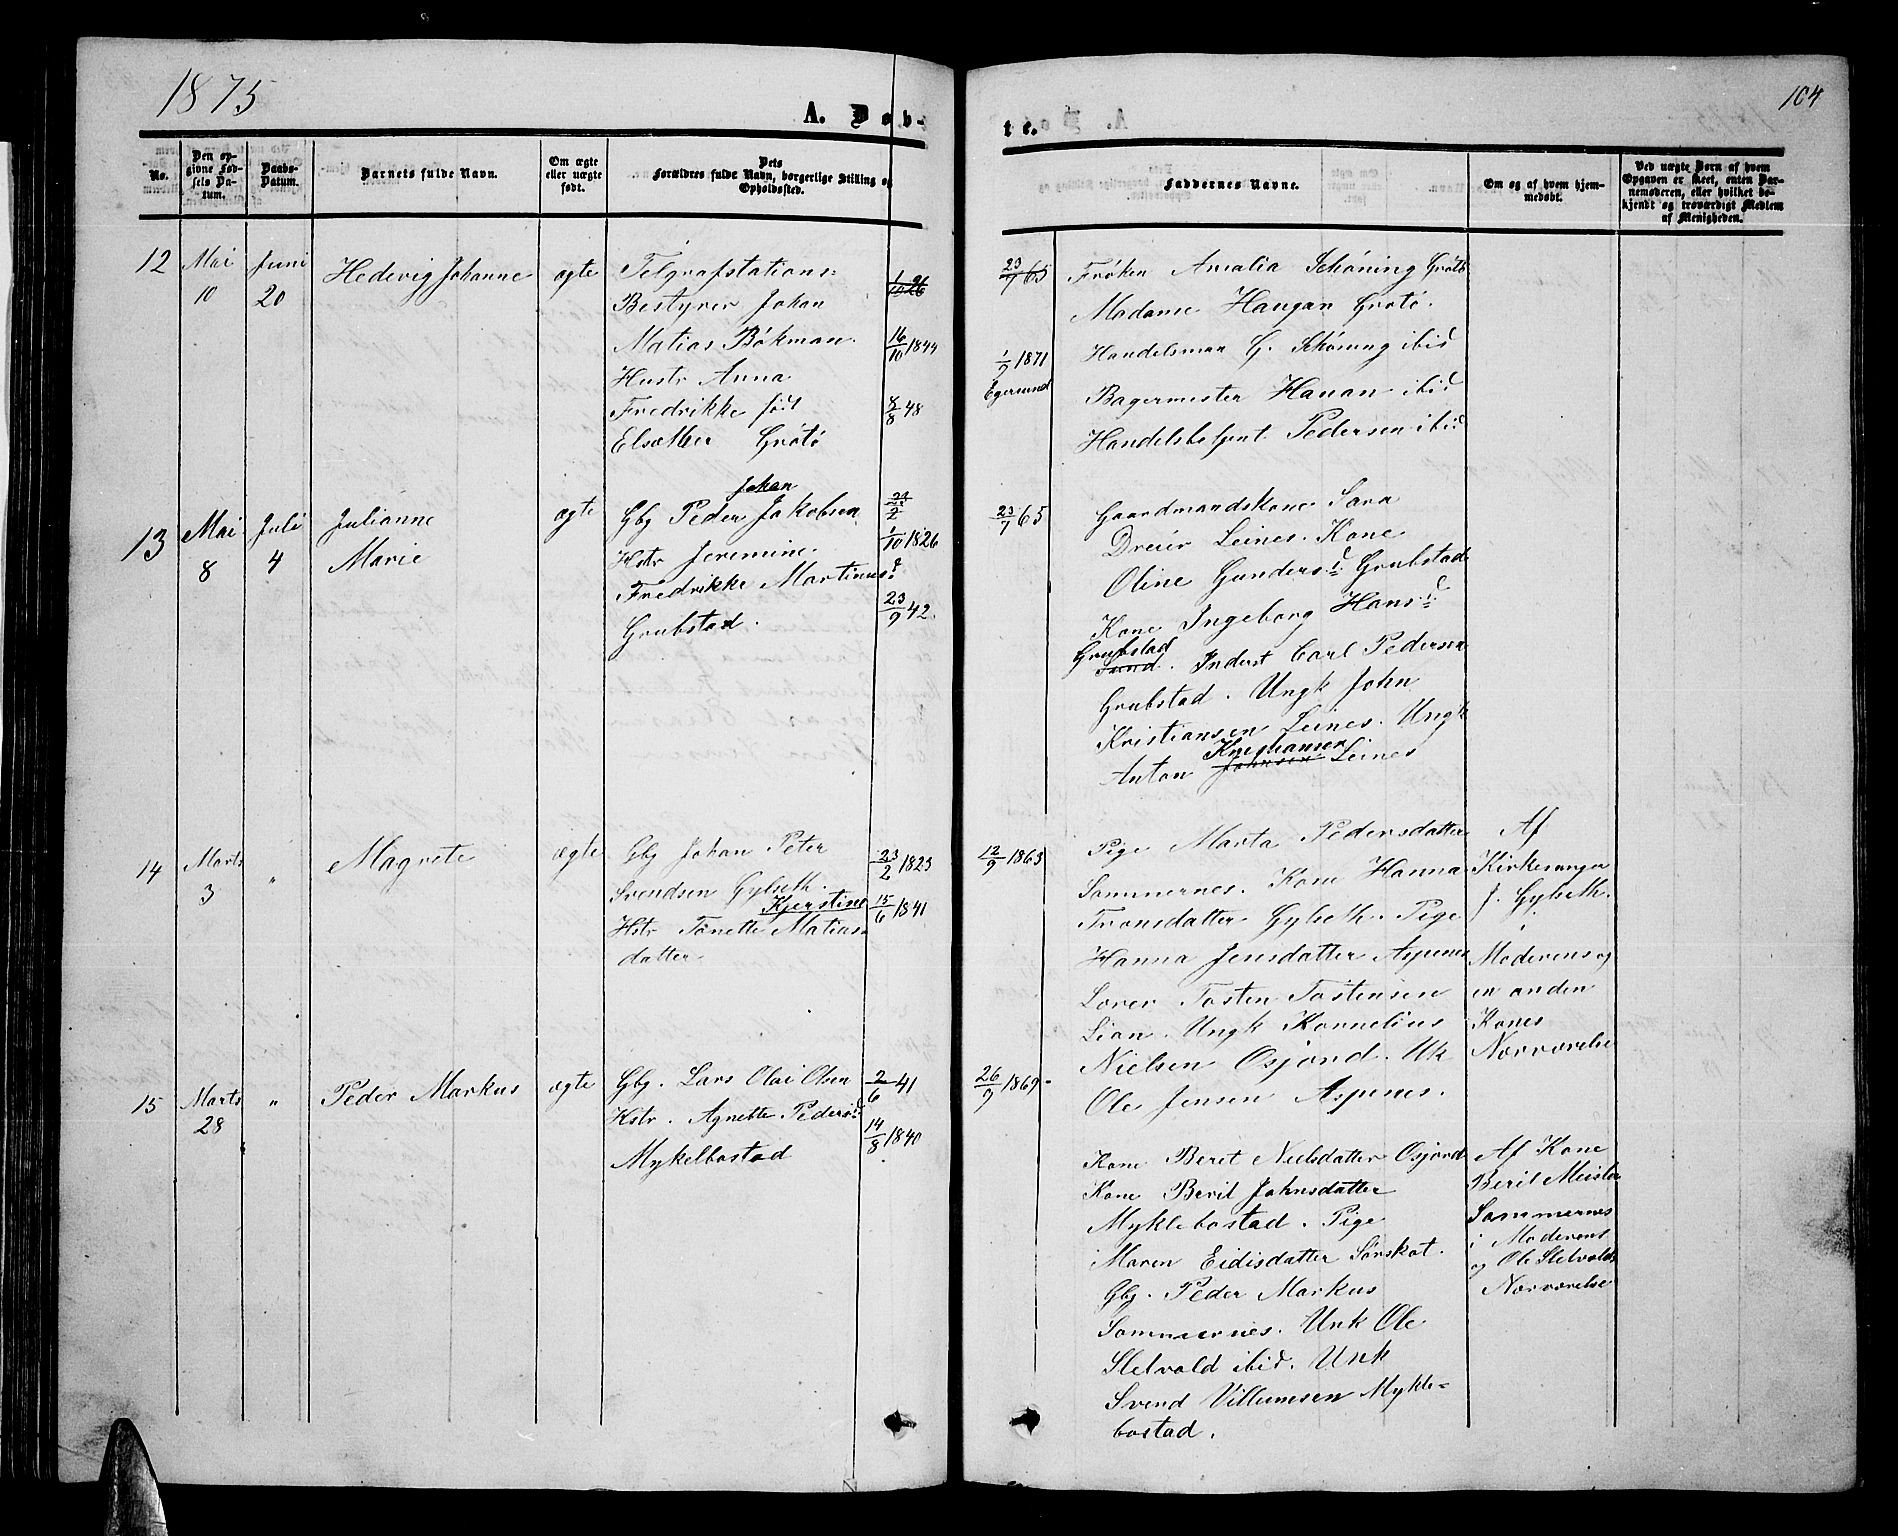 1875
104
A. Døb-
te.
No.
Den op-
givne Fød-
sels Da-
tum.
Daabs-
Datum.
Barnets fulde Navn.
Om ægte
eller uægte
født.
Dets
Forældres fulde Navn, borgerlige Stilling og
Opholdssted.
Faddernes Navne.
Om og af hvem hjem-
medøbt.
Ved uægte Børn af hvem
Opgaven er skeet, enten Bar-
nemoderen, eller hvilket be-
kjendt og troværdigt Medlem
af Menigheden.
12
Mai
10
Juni
20
Hedevig Johanne
ægte
Telgrafstations=
Bestyrer Johan
Matias Bøkman
Hustr Anna
Fredrikke født
Elsæther Grøtø
16/10 1844
8/8 48
23/7 65
1/9 1871
Egersund
Frøken Amalia Schøning Grøtø
Madame Haugan Grøtø.
Handelsman G. Schøning ibid
Bagermester Hanan ibid
Handelsbetjent Pedersen ibid
13
Mai
8
Juli
4
Julianne
Marie
ægte
Johan
Gbg Peder Jakobsen
Hstr Jeremine
Fredrikke Martinusd
Grubstad.
1/10 1826
23/9 42.
23/7 65
Gaardmandskone Sara
Dreier Leines. Kone
Oline Gundersd Grubstad
Kone Ingeborg Hansd
Grubstad
. Inderst Carl Pedersen
Grubstad. Ungk John
Kristiansen Leines. Ungk
Anton Johnsen Leines
14
Marts
3
"
Magrete
ægte
Gbg Johan Peter
Svendsen Gylseth.
Kjerstine
Hstr Tonette Matias
datter
23/2 1823
15/6 1841
12/9 1863
Pige Marta Pedersdatter
Sommernes. Kone Hanna
Tronsdatter Gylseth. Pige
Hanna Jensdatter Aspenes
Lorer Tosten Tostensen
Lian. Ungk Kornelius
Nielsen Osjord. Uk
Ole Jensen Aspenes.
Af
Kirkesanger
J. Gylseth.
i
Moderens og
en anden
Kones
Nærværelse
15
Marts
28
"
Peder Markus
ægte
Gbg. Lars Olai Olsen
Hstr. Agnette Pedersd
Mykelbostad
2/6 41
14/8 1840
26/9 1869
Kone Beret Nielsdatter Osjord
Kone Beril Johnsdatter
Myklebostad. Pige
Maren Eidisdatter Sørskot.
Gbg. Peder Markus
Sommernes. Unk Ole
Sletvold ibid. Unk
Svend Villumsen Mykle=
bostad.
Af Kone
Beril Meister
Sommernes
i Moderens
og Ole Sletvolds
Nærværelse